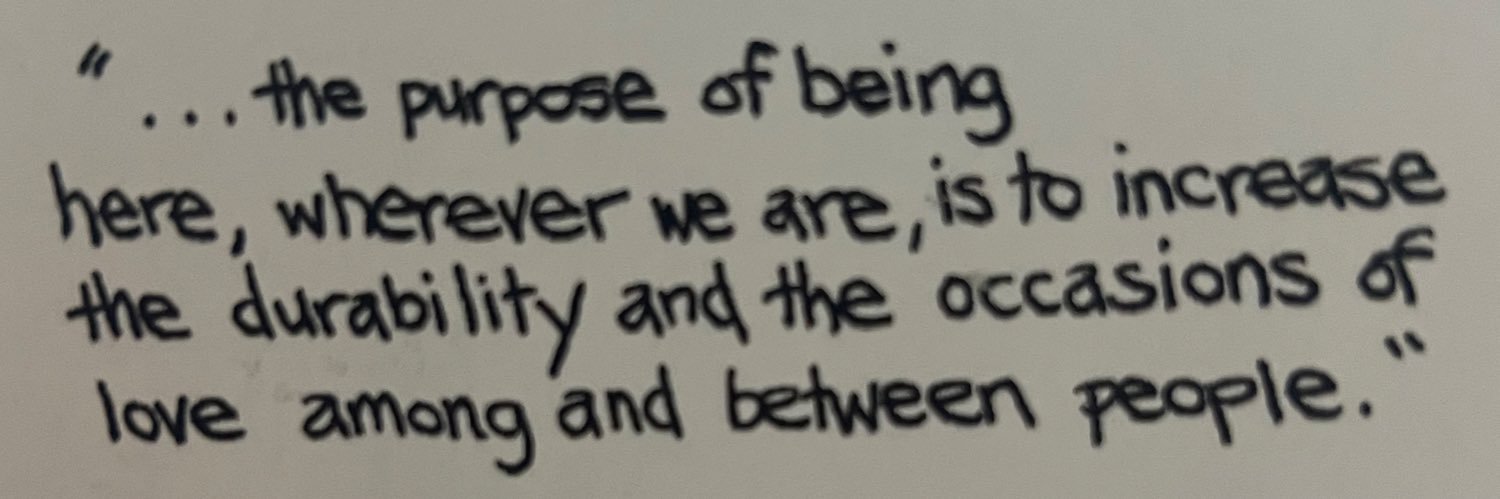 "...the purpose of being
here, wherever we are, is to increase
the durability and the occasions of
love among and between people."